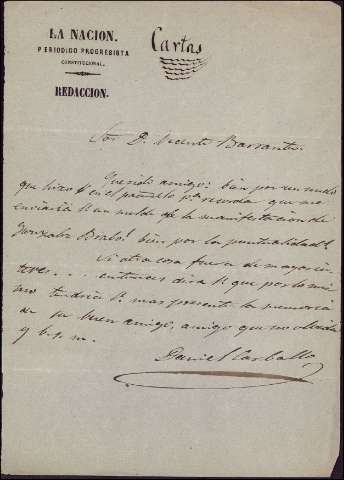 LA NACION.
PERIODICO PROGRESISTA
CONSTITUCIONAL.
REDACCION.
Cartas
Sor D. Vicente Barrantes.
Querido amigo: bien por un nudo
que hizo V. en el pañuelo pa. recordar que me
enviaria V. un molde de la manifestacion de
Gonzalez Brabo! bien por la puntualidad!
Si otra cosa fuera de mayor in-
teres... entonces dira V. que por lo mis
mo tendria V. mas presente la memoria
de su buen amigo, amigo que no olvida
y b. s. m.
Daniel Carballo